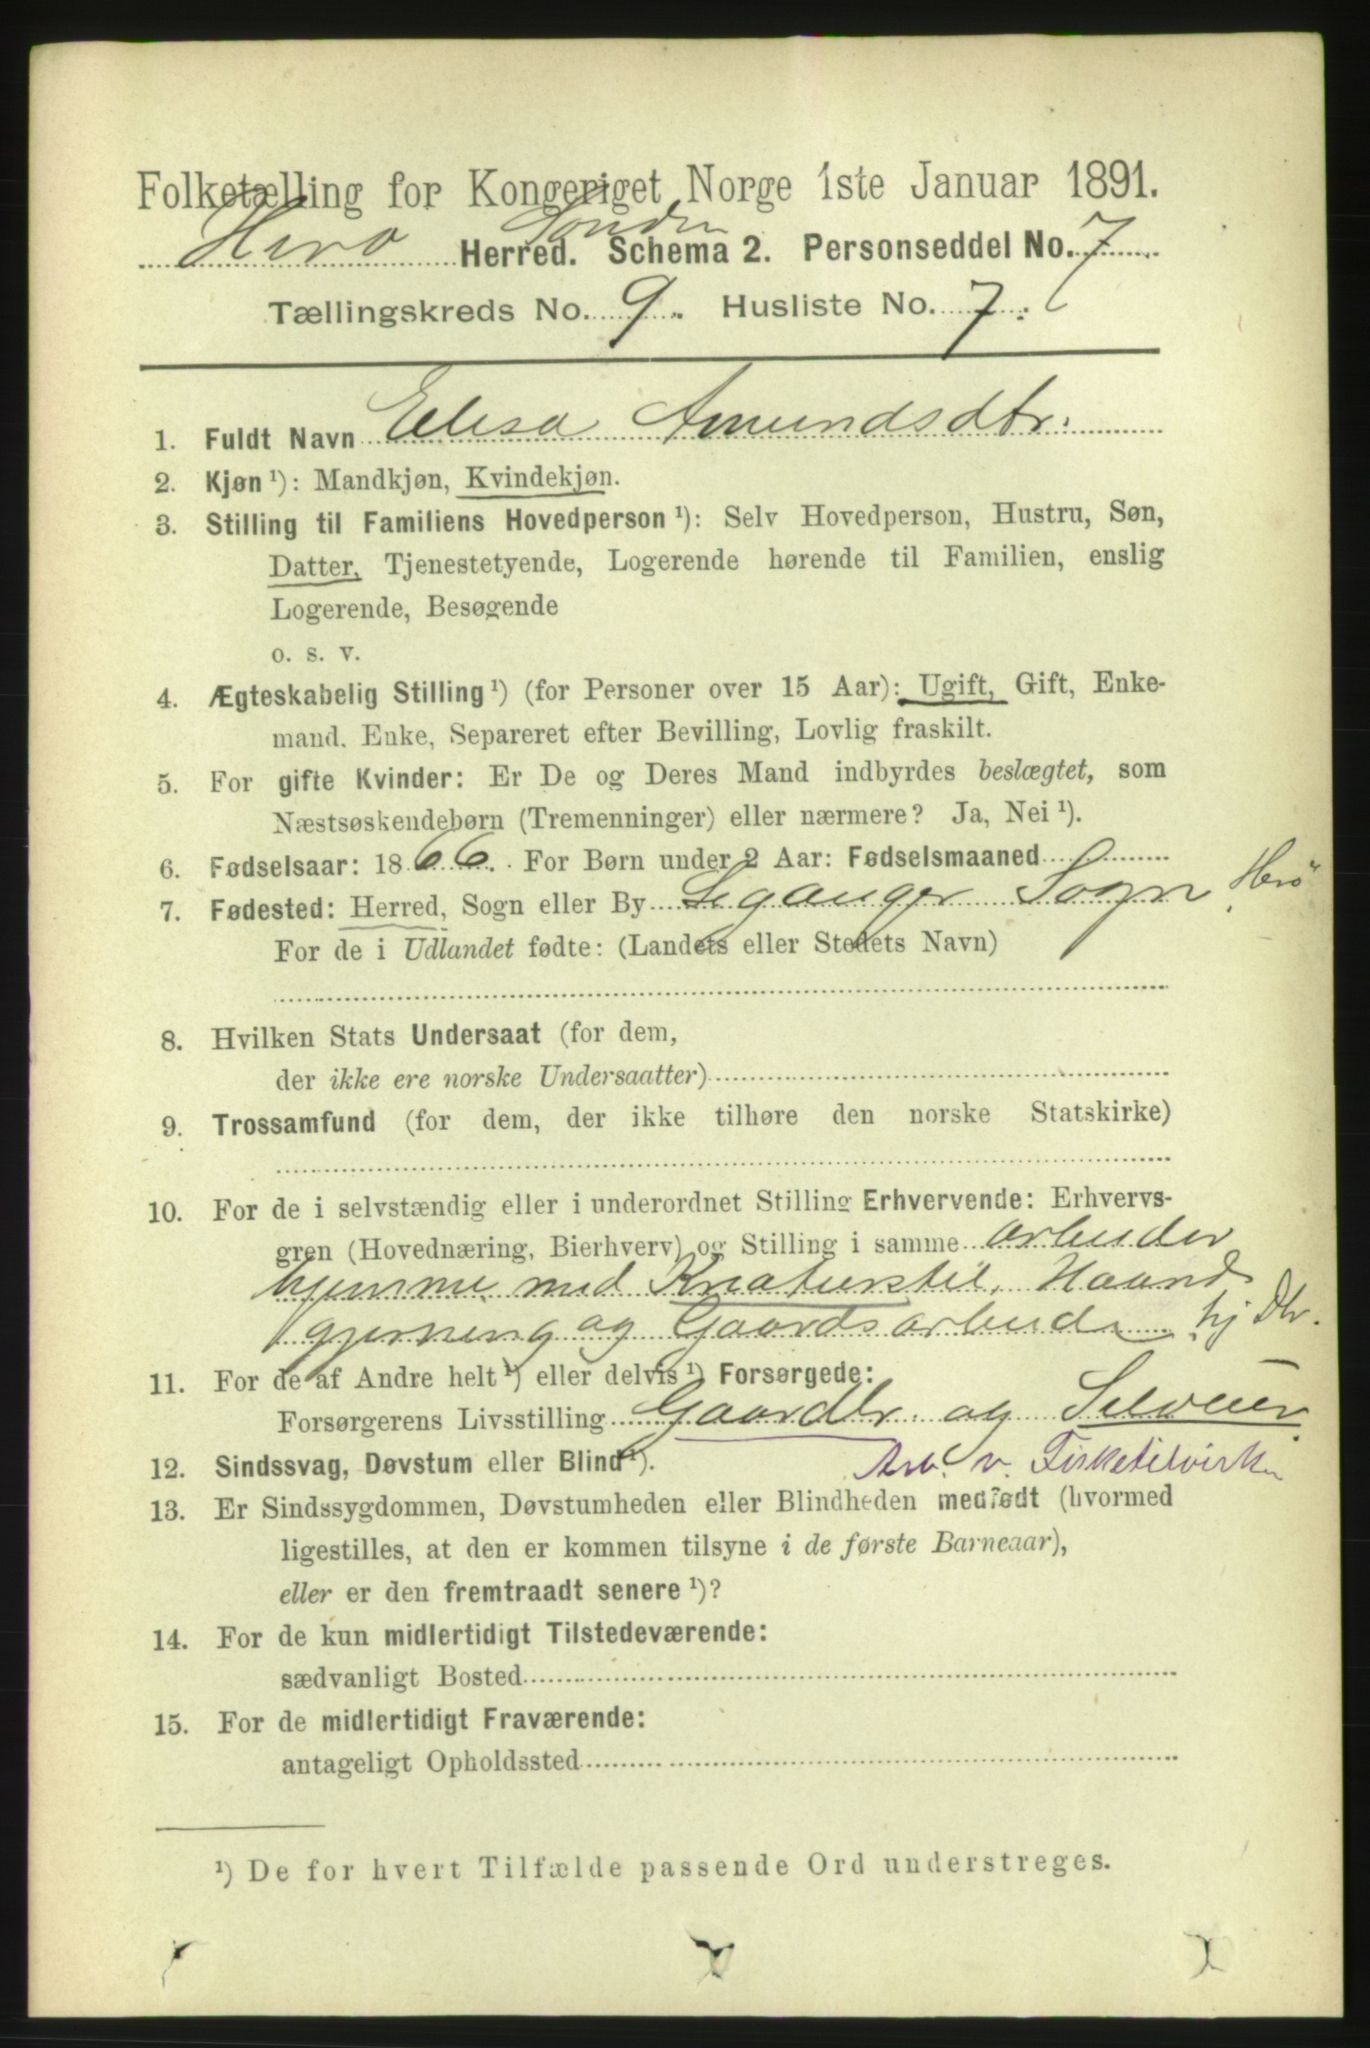 Folketælling for Kongeriget Norge 1ste Januar 1891.
Herø Søndre Herred. Schema 2. Personseddel No. 7
Tællingskreds No. 9. Husliste No. 7.
1. Fuldt Navn Elisa Amundsdtr.
2. Kjøn ¹): Mandkjøn, Kvindekjøn.
3. Stilling til Familiens Hovedperson ¹): Selv Hovedperson, Hustru, Søn,
Datter, Tjenestetyende, Logerende hørende til Familien, enslig
Logerende, Besøgende
o. s. v.
4. Ægteskabelig Stilling ¹) (for Personer over 15 Aar): Ugift, Gift, Enke-
mand. Enke, Separeret efter Bevilling, Lovlig fraskilt.
5. For gifte Kvinder: Er De og Deres Mand indbyrdes beslægtet, som
Næstsøskendebørn (Tremenninger) eller nærmere? Ja, Nei ¹).
6. Fødselsaar: 1866. For Børn under 2 Aar: Fødselsmaaned
7. Fødested: Herred, Sogn eller By Leganger Sogn, Herö
For de i Udlandet fødte: (Landets eller Stedets Navn)
8. Hvilken Stats Undersaat (for dem,
der ikke ere norske Undersaatter)
9. Trossamfund (for dem, der ikke tilhøre den norske Statskirke)
10. For de i selvstændig eller i underordnet Stilling Erhvervende: Erhvervs-
gren (Hovednæring, Bierhverv) og Stilling i samme arbeider
hjemme med Kreaturstel, Haand
gjerning og Gaardsarbeide hj Dtr.
11. For de af Andre helt ¹) eller delvis ¹) Forsørgede:
Forsørgerens Livsstilling Gaardbr. og Selveier
12. Sindssvag, Døvstum eller Blind ¹). Arb. v. Fisketilvirkn
13. Er Sindssygdommen, Døvstumheden eller Blindheden medfødt (hvormed
ligestilles, at den er kommen tilsyne i de første Barneaar),
eller er den fremtraadt senere ¹)?
14. For de kun midlertidigt Tilstedeværende:
sædvanligt Bosted
15. For de midlertidigt Fraværende:
antageligt Opholdssted
¹) De for hvert Tilfælde passende Ord understreges.